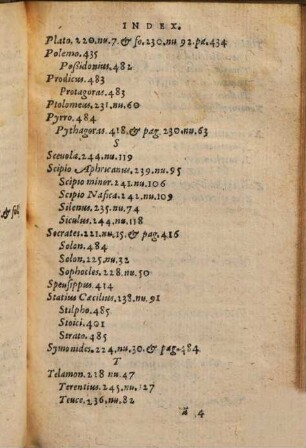 INDEX.
Plato. 220.nu.7.& fo.230.nu 92.pa.434
Polemo.435
Poßidonius.482
Prodicus.483
Protagoras.483
Ptolomeus.231.nu.60
Pyrro.484
Pythagoras.418.& pag 230.nu.63
S
Sceuola.244.nu.119
Scipio Aphricanus.239.nu.95
Scipio minor.241.nu.106
Scipio Nasica.242.nu.109
Silenus.235.nu.74
Siculus.244.nu.118
Socrates.221.nu.15.& pag.416
Solon.484
Solon.225.nu.32
Sophocles.228.nu.50
Speusippus.414
Statius Cæcilius.238.nu.91
Stilpho.485
Stoici.401
Strato.485
Symonides.224.nu.30.& pag.484
T
Telamon.228 nu.47
Terentius.245.nu.127
Teuce.236.nu.82
a 4